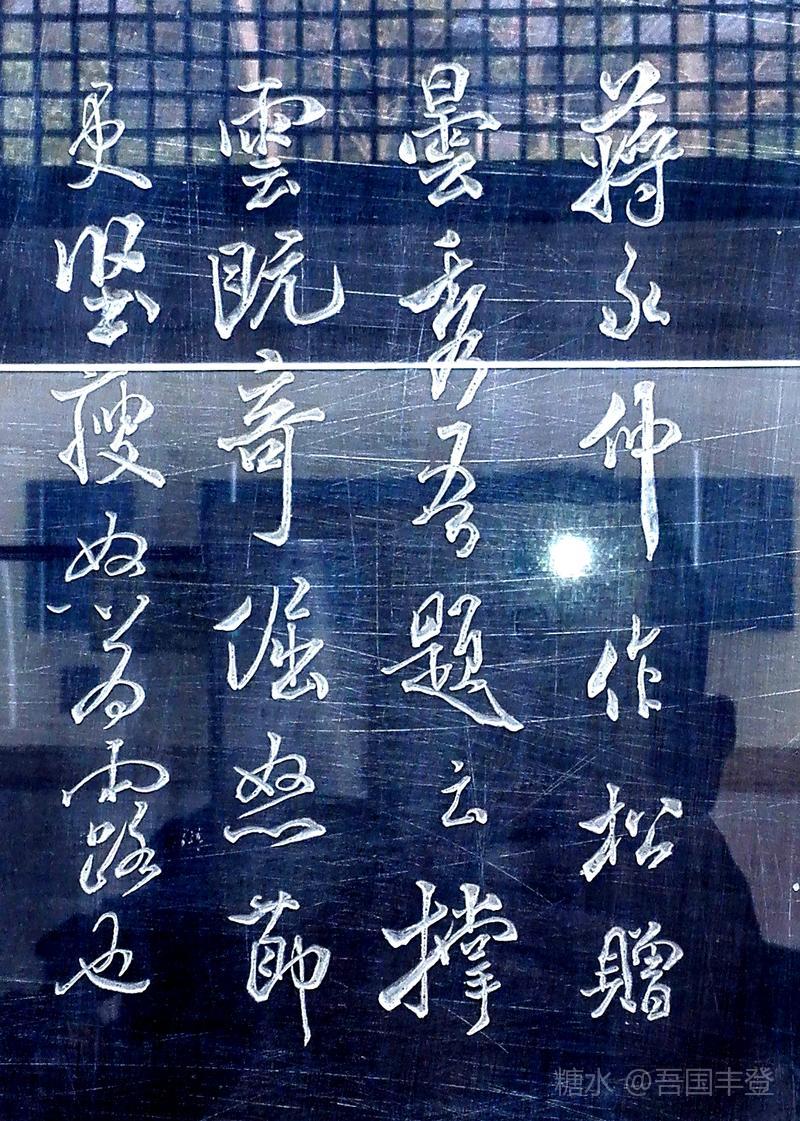 蔣永仲作松贈
曇秀吾題云撐
雲既奇倔怒節
更堅瘦怒為露也
糖水 @吾国丰登